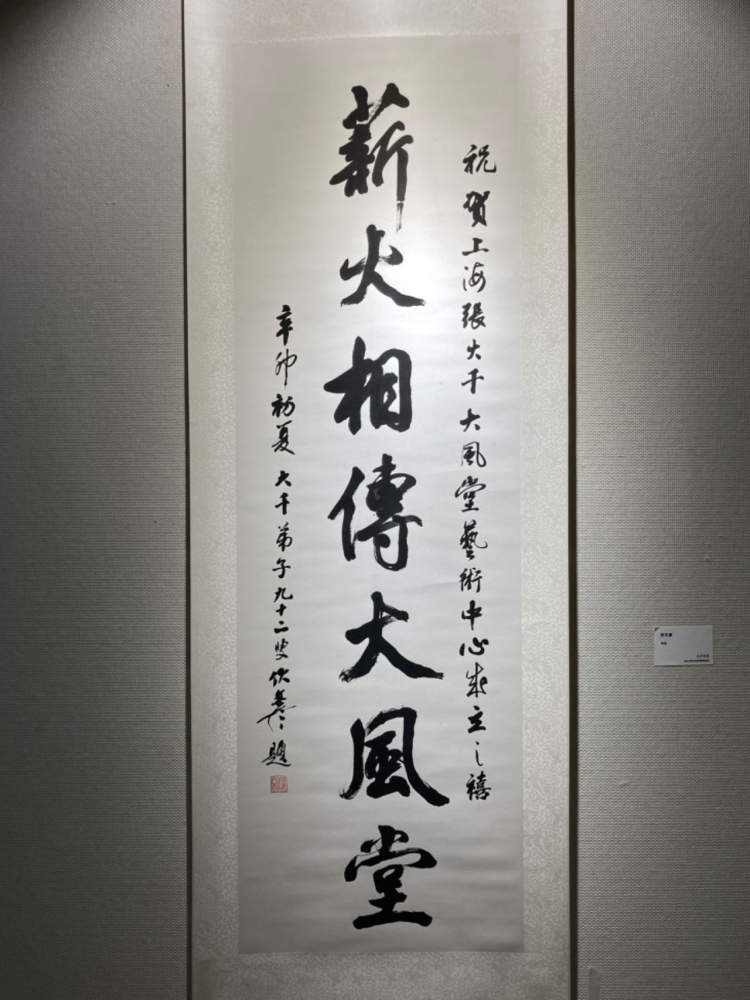 祝賀上海張大千大風堂藝術中心成立之禧
薪火相傳大風堂
辛卯初夏大千弟子九十二叟伏文彥題